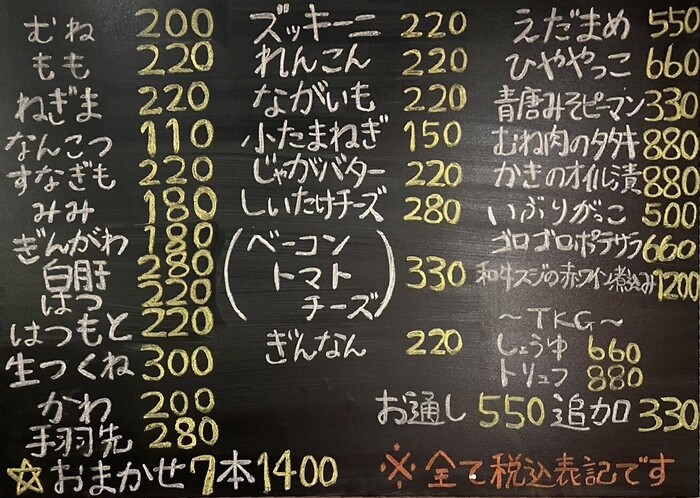 むね 200
もも 220
ねぎま 220
なんこつ 110
すなぎも 220
みみ 180
ぎんがわ 180
白肝 280
はつ 220
はつもと 220
生つくね 300
かわ 200
手羽先 280
☆おまかせ7本1400
ズッキーニ 220
れんこん 220
ながいも 220
小たまねぎ 150
じゃがバター 220
しいたけチーズ 280
(ベーコン
トマト 330
チーズ)
ぎんなん 220
えだまめ 550
ひややっこ 660
青唐みそピーマン 330
むね肉のタタキ 880
かきのオイル漬 880
いぶりがっこ 500
ゴロゴロポテサラ 660
和牛スジの赤ワイン煮込み 1200
〜TKG〜
しょうゆ 660
トリュフ 880
お通し 550 追加 330
※全て税込表記です